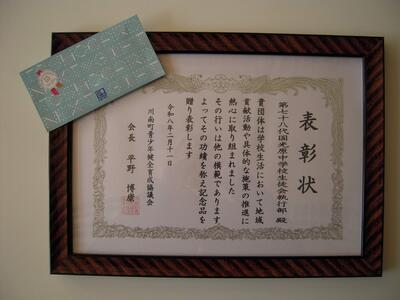 表彰状
第七十八代国光原中学校生徒会執行部 殿
貴団体は学校生活において地域
貢献活動や具体的な施策の推進に
熱心に取り組まれました
その行いは他の模範であります
よってその功績を称え記念品を
贈り表彰します
令和八年二月十一日
川南町青少年健全育成協議会
会長 平野 博康